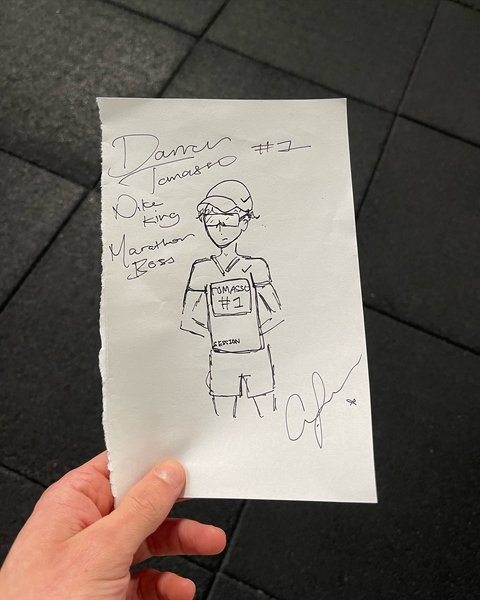 Darren #1
Tomasso
Nike
King
Marathon
Boss
TOMASSO
#1